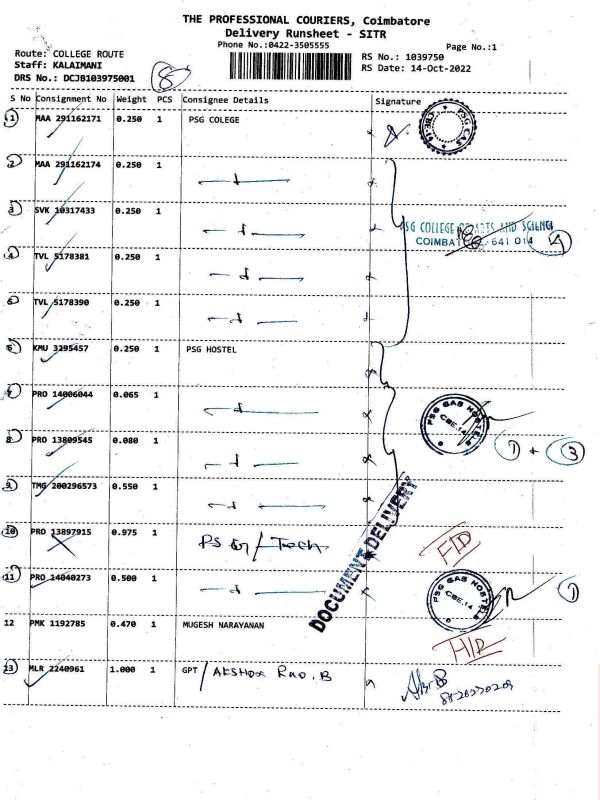 THE PROFESSIONAL COURIERS, Coimbatore
Delivery Runsheet - SITR
Phone No.:0422-3505555
Page No.:1
Route: COLLEGE ROUTE
RS No.: 1039750
Staff: KALAIMANI
RS Date: 14-Oct-2022
DRS No.: DCJB103975001
8
S No Consignment No Weight PCS Consignee Details Signature
1 MAA 291162171 0.250 1 PSG COLEGE
PSG CAS
2 MAA 291162174 0.250 1
3 SVK 10317433 0.250 1
PSG COLLEGE OF ARTS AND SCIENCE
COIMBATORE 641 014
4
4 TVL 5178381 0.250 1
5 TVL 5178390 0.250 1
6 KMU 3295457 0.250 1 PSG HOSTEL
7 PRO 14006044 0.065 1
PSG CAS HOSTELS
CBE.14
8 PRO 13809545 0.080 1
1 + 3
9 TMG 200296573 0.550 1
DOCUMENT DELIVERY
10 PRO 13897915 0.975 1 PSG / Tech
11 PRO 14040273 0.500 1
PSG CAS HOSTELS
CBE.14
1
12 PMK 1192785 0.470 1 MUGESH NARAYANAN
13 MLR 2240961 1.000 1 GPT / AKSHOX RAO. B